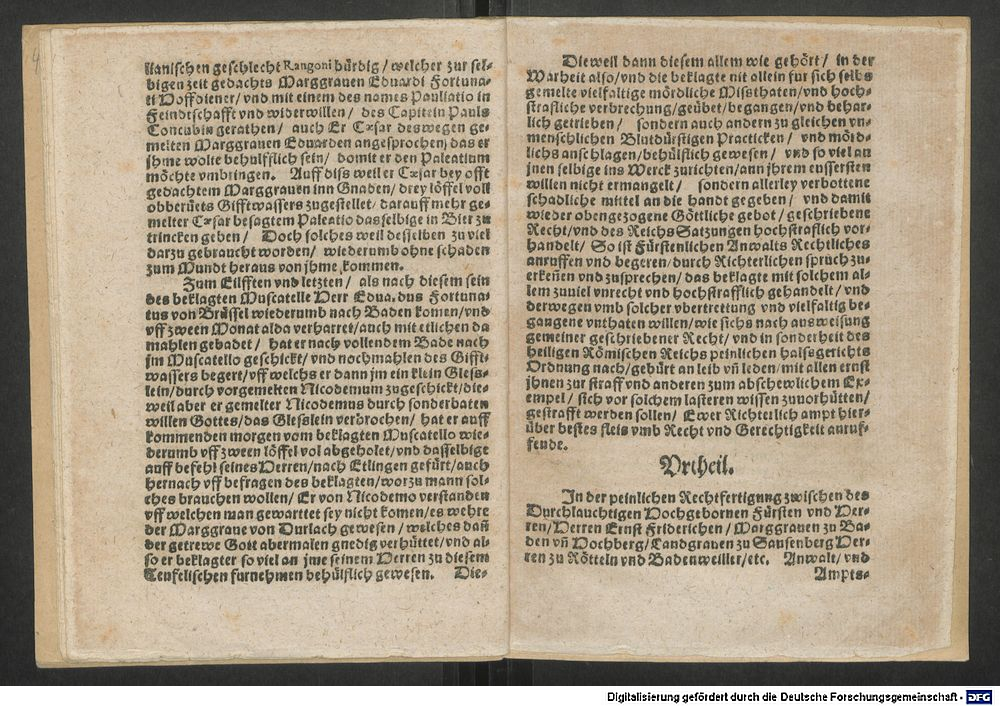 lianischen geschlecht Rangoni bürdig/ welcher zur sel-
bigen zeit gedachts Marggrauen Eduardi Fortuna-
ti Hoffdiener/ vnd mit einem des names Pauliatio in
Feindtschafft vnd widerwillen/ des Capitein Pauls
Concubin gerathen/ auch Er Cæsar deswegen ge-
melten Marggrauen Eduarden angesprochen/ das er
jhme wolte behülfflich sein/ domit er den Paleatium
möchte vmbringen. Auff diss weil er Cæsar bey offt
gedachtem Marggrauen inn Gnaden/ drey löffel voll
obberüets Gifftwassers zugestellet/ darauff mehr ge-
melter Cæsar besagtem Paleatio dasselbige in Bier zu
trincken geben/ Doch solches weil desselben zu viel
darzu gebraucht worden/ wiederumb ohne schaden
zum Mundt heraus von jhme kommen.
Zum Eilfften vnd letzten/ als nach diesem sein
des beklagten Muscatelle Herr Eduardus Fortuna-
tus von Brüssel wiederumb nach Baden komen/ vnd
vff zween Monat alda verharret/ auch mit etlichen da
mahlen gebadet/ hat er nach vollendem Bade nach
jm Muscatello geschickt/ vnd nochmahlen des Gifft-
wassers begert/ vff welchs er dann jm ein klein Gless-
lein/ durch vorgemelten Nicodemum zugeschickt/ die-
weil aber er gemelter Nicodemus durch sonderbaten
willen Gottes/ das Glesslein verbrochen/ hat er auff
kommenden morgen vom beklagten Muscatello wie-
derumb vff zween löffel vol abgeholet/ vnd dasselbige
auff befehl seines Herren/ nach Etlingen gefürt/ auch
hernach vff befragen des beklagten/ worzu mann sol-
ches brauchen wollen/ Er von Nicodemo verstanden
vff welchen man gewarttet sey nicht komen/ es wehre
der Marggraue von Durlach gewesen/ welches dañ
der getrewe Gott abermalen gnedig verhüttet/ vnd al-
so er beklagter so viel an jme seinem Herren zu diesem
Teufelischen furnehmen behülflich gewesen. Die-
Dieweil dann diesem allem wie gehört/ in der
Warheit also/ vnd die beklagte nit allein fur sich selbs
gemelte vielfaltige mördliche Missthaten/ vnd hoch-
strafliche verbrechung/ geübet/ begangen/ vnd behar-
lich getrieben/ sondern auch andern zu gleichen vn-
menschlichen Blutdürstigen Practicken/ vnd mörd-
lichs anschlagen/ behülflich gewesen/ vnd so viel an
jnen selbige ins Werck zurichten/ ann jhrem eussersten
willen nicht ermangelt/ sondern allerley verbottene
schadliche mittel an die handt gegeben/ vnd damit
wieder obengezogene Göttliche gebot/ geschriebene
Recht/ vnd des Reichs Satzungen hochstraflich vor-
handelt/ So ist Fürstenlichen Anwalts Rechtliches
anruffen vnd begeren/ durch Richterlichen spruch zu-
erkeñen vnd zusprechen/ das beklagte mit solchem al-
lem zuuiel vnrecht vnd hochstrafflich gehandelt/ vnd
derwegen vmb solcher vbertrettung vnd vielfaltig be-
gangene vnthaten willen/ wie sichs nach ausweisung
gemeiner geschriebener Recht/ vnd in sonderheit des
heiligen Römischen Reichs peinlichen halsgerichts
Ordnung nach/ gebürt an leib vñ leden/ mit allen ernst
jhnen zur straff vnd anderen zum abschewlichem Ex-
empel/ sich vor solchem lasteren wissen zuuorhütten/
gestrafft werden sollen/ Ewer Richterlich ampt hier-
über bestes fleis vmb Recht vnd Gerechtigkeit anruf-
fende.
Vrtheil.
In der peinlichen Rechtfertigung zwischen des
Durchlauchtigen Hochgebornen Fürsten vnd Her-
ren/ Herren Ernst Friderichen/ Marggrauen zu Ba-
den vñ Hochberg/ Landgrauen zu Sausenberg Her-
ren zu Rötteln vnd Badenweiller/ etc. Anwalt/ vnd
Ampts-
Digitalisierung gefördert durch die Deutsche Forschungsgemeinschaft - DFG